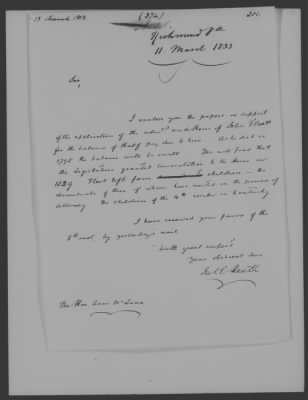 (374)
Richmond Va
11 March 1833
Sir,
I enclose you the papers in support
of the application of the adm.r and Heirs of John
for the balance of Half Pay due to him. As he died in
the balance will be small. You will find that
the Legislature granted commutation to the Heirs in
1829. left four children - the
descendants of three of whom have united in the power of
Attorney the children of the 4th reside in Kentucky
I have received your favor of the
8th inst. by yesterday's mail
With great respect
Your obedient Serv
Jas E Heath
The Hon Louis McLane